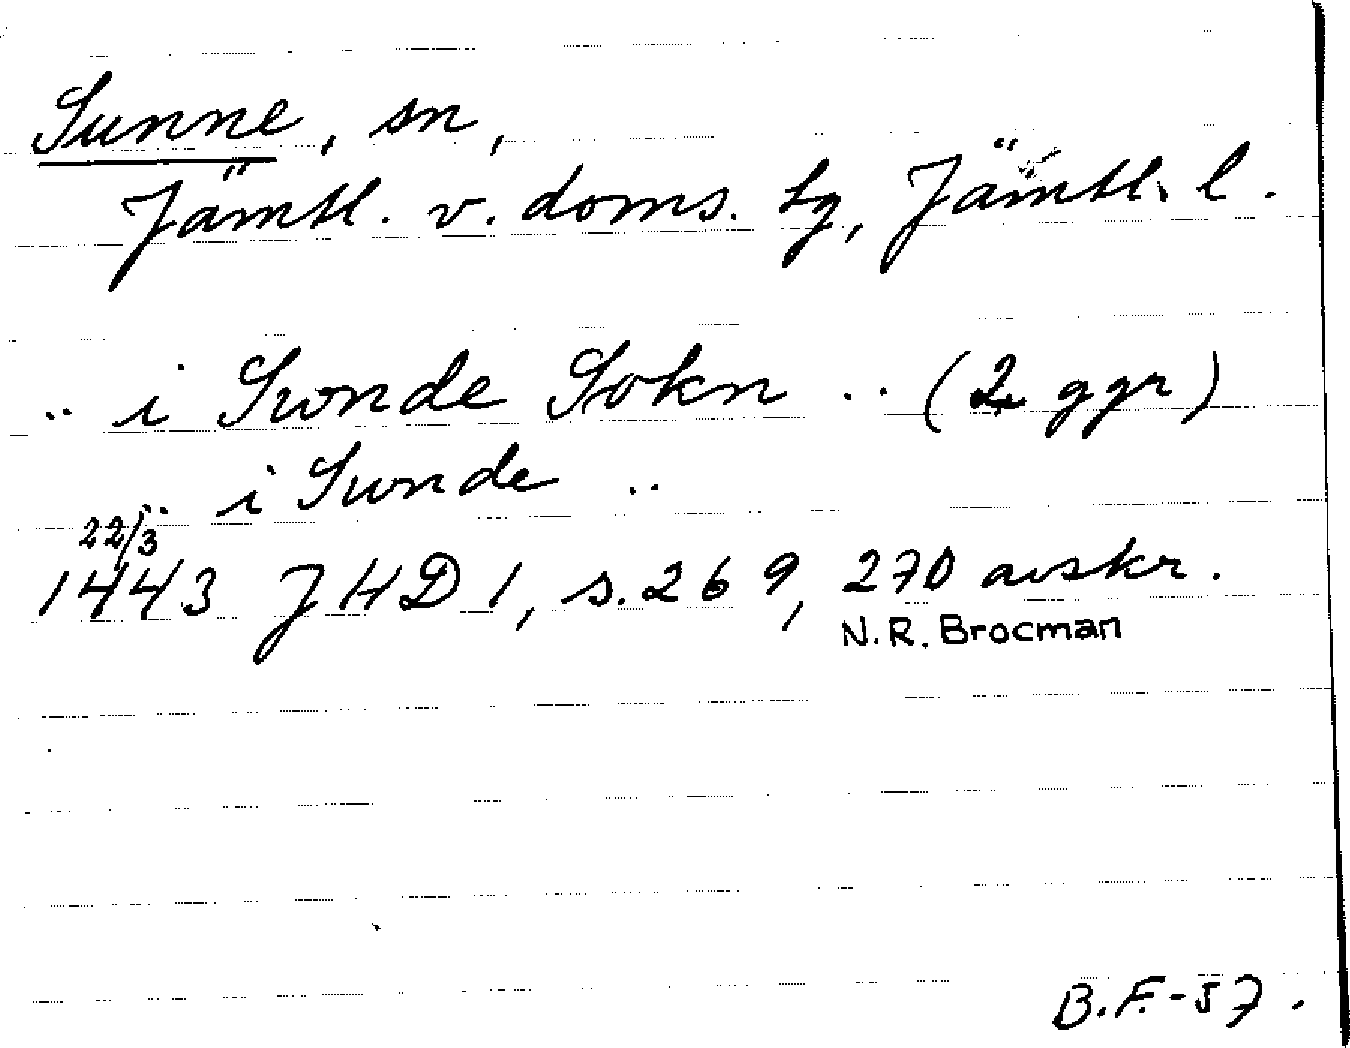 Sunne, sn,
Jämtl. v. doms. tg, Jämtl. l.
.. i Swnde Sokn .. (2 ggr)
.. i Swnde ..
22/3
1443 JHD 1, s. 269, 270 avskr.
N.R. Brocman
B.F.-57.